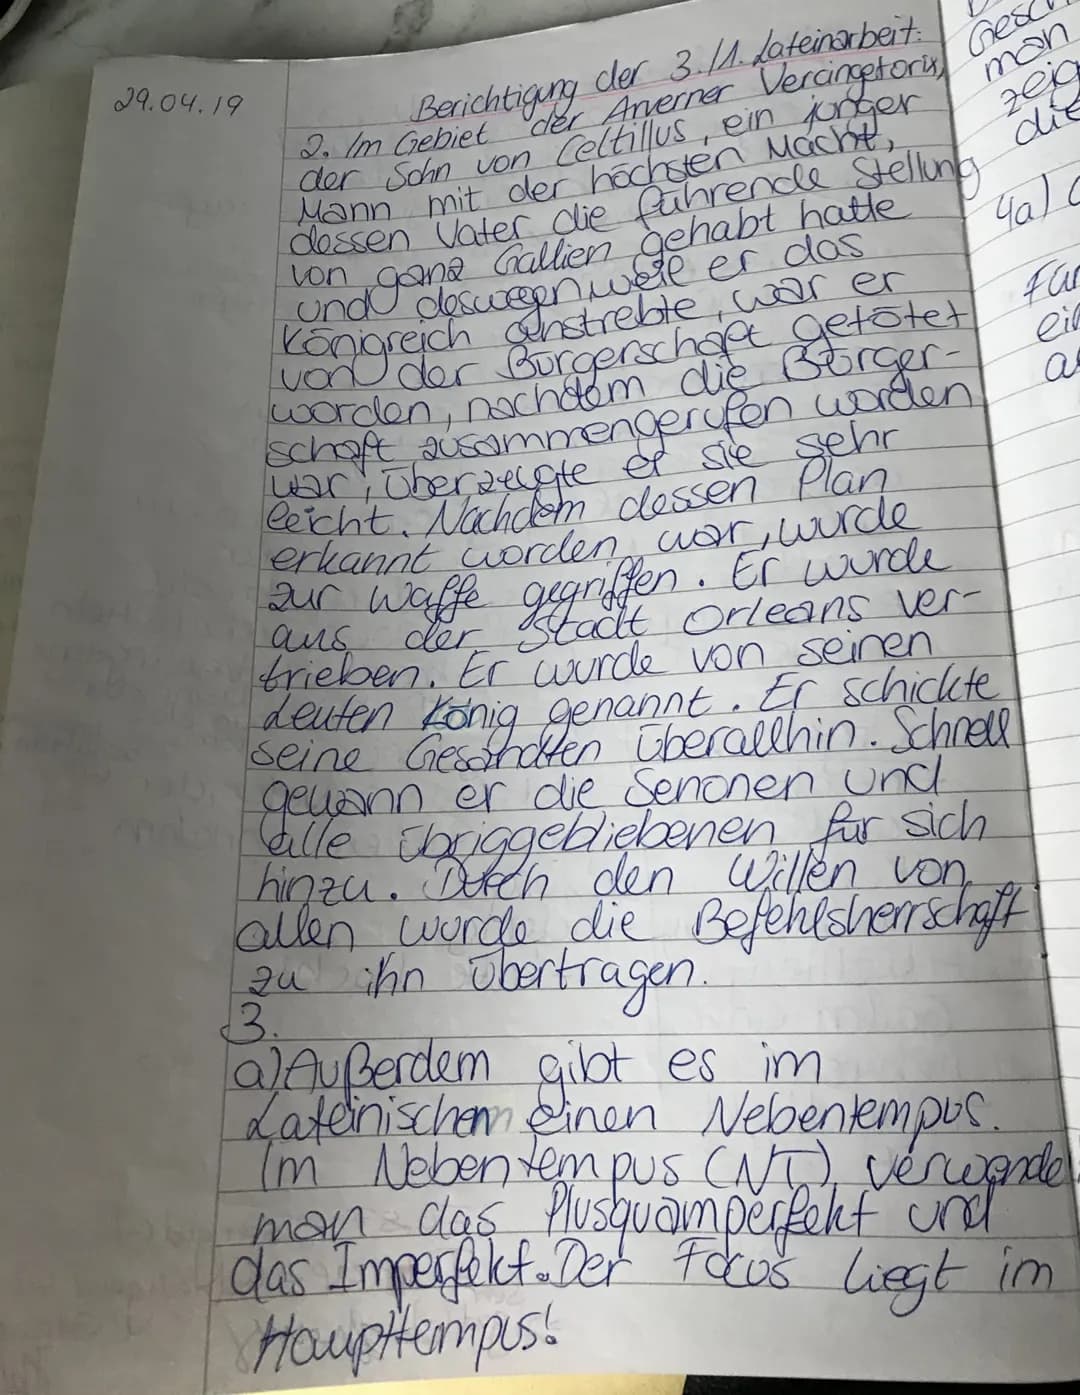 29.04.19
Berichtigung der 3./1. Lateinarbeit:
2. Im Gebiet der Arverner Vercingetorix,
der Sohn von Celtillus, ein junger
Mann mit der höchsten Macht,
dessen Vater die führende Stellung
von ganz Gallien gehabt hatte
und deswegen, weil er das
Königreich anstrebte, war er
von der Bürgerschaft getötet
worden, nachdem die Bürger-
schaft zusammengerufen worden
war, überzeugte er sie sehr
leicht. Nachdem dessen Plan
erkannt worden war, wurde
zur Waffe gegriffen. Er wurde
aus der Stadt Orleans ver-
trieben. Er wurde von seinen
Leuten König genannt. Er schickte
seine Gesandten überallhin. Schnell
gewann er die Senonen und
alle übriggebliebenen für sich
hinzu. Durch den Willen von
allen wurde die Befehlsherrschaft
zu ihn übertragen.
3.
a) Außerdem gibt es im
Lateinischen einen Nebentempus.
Im Nebentempus (NT) verwende
man das Plusquamperfekt und
das Imperfekt. Der Focus liegt im
Haupttempus!
man
die
4a)